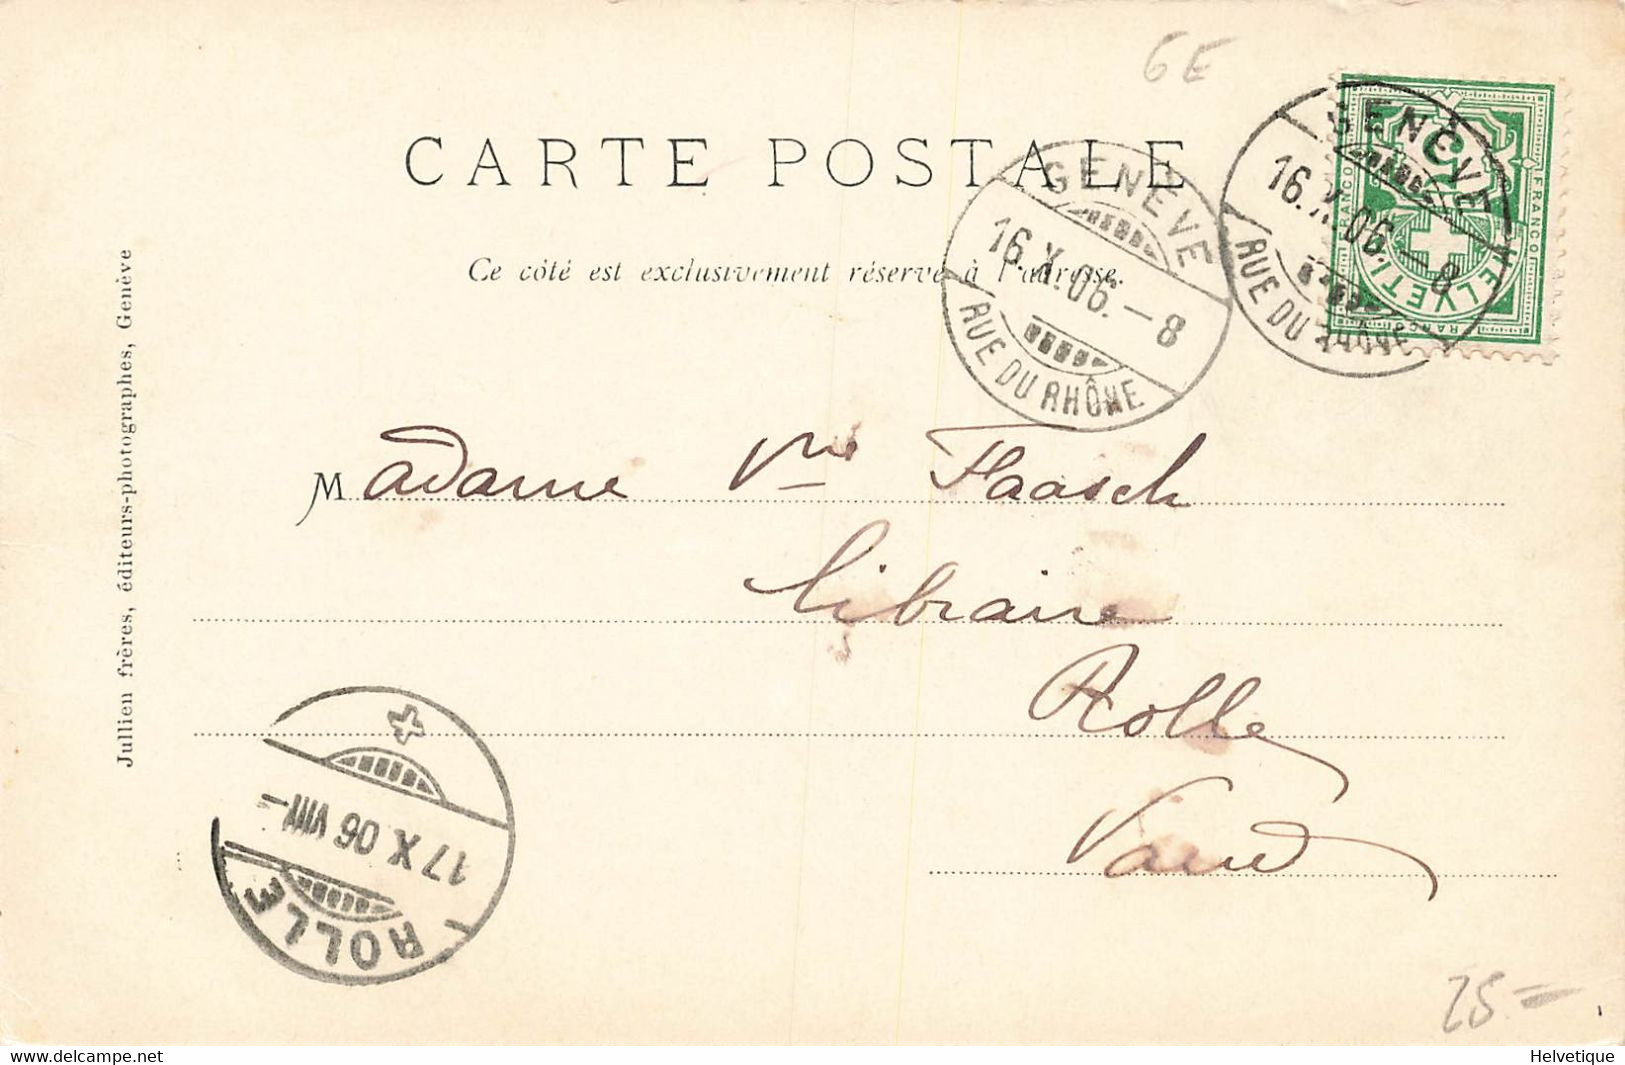 GE
CARTE POSTALE
Ce côté est exclusivement réservé à l'adresse.
GENÈVE
16.X.06.—8
RUE DU RHÔNE
GENÈVE
16.X.06.—8
RUE DU RHÔNE
FRANCO
FRANCO
HELVETIA
Madame Vve Haasch
libraire
Rolle
Vaud
Jullien frères, éditeurs-photographes, Genève
ROLLE
17 X 06 VIII—
25.—
©delcampe.net
Helvetique